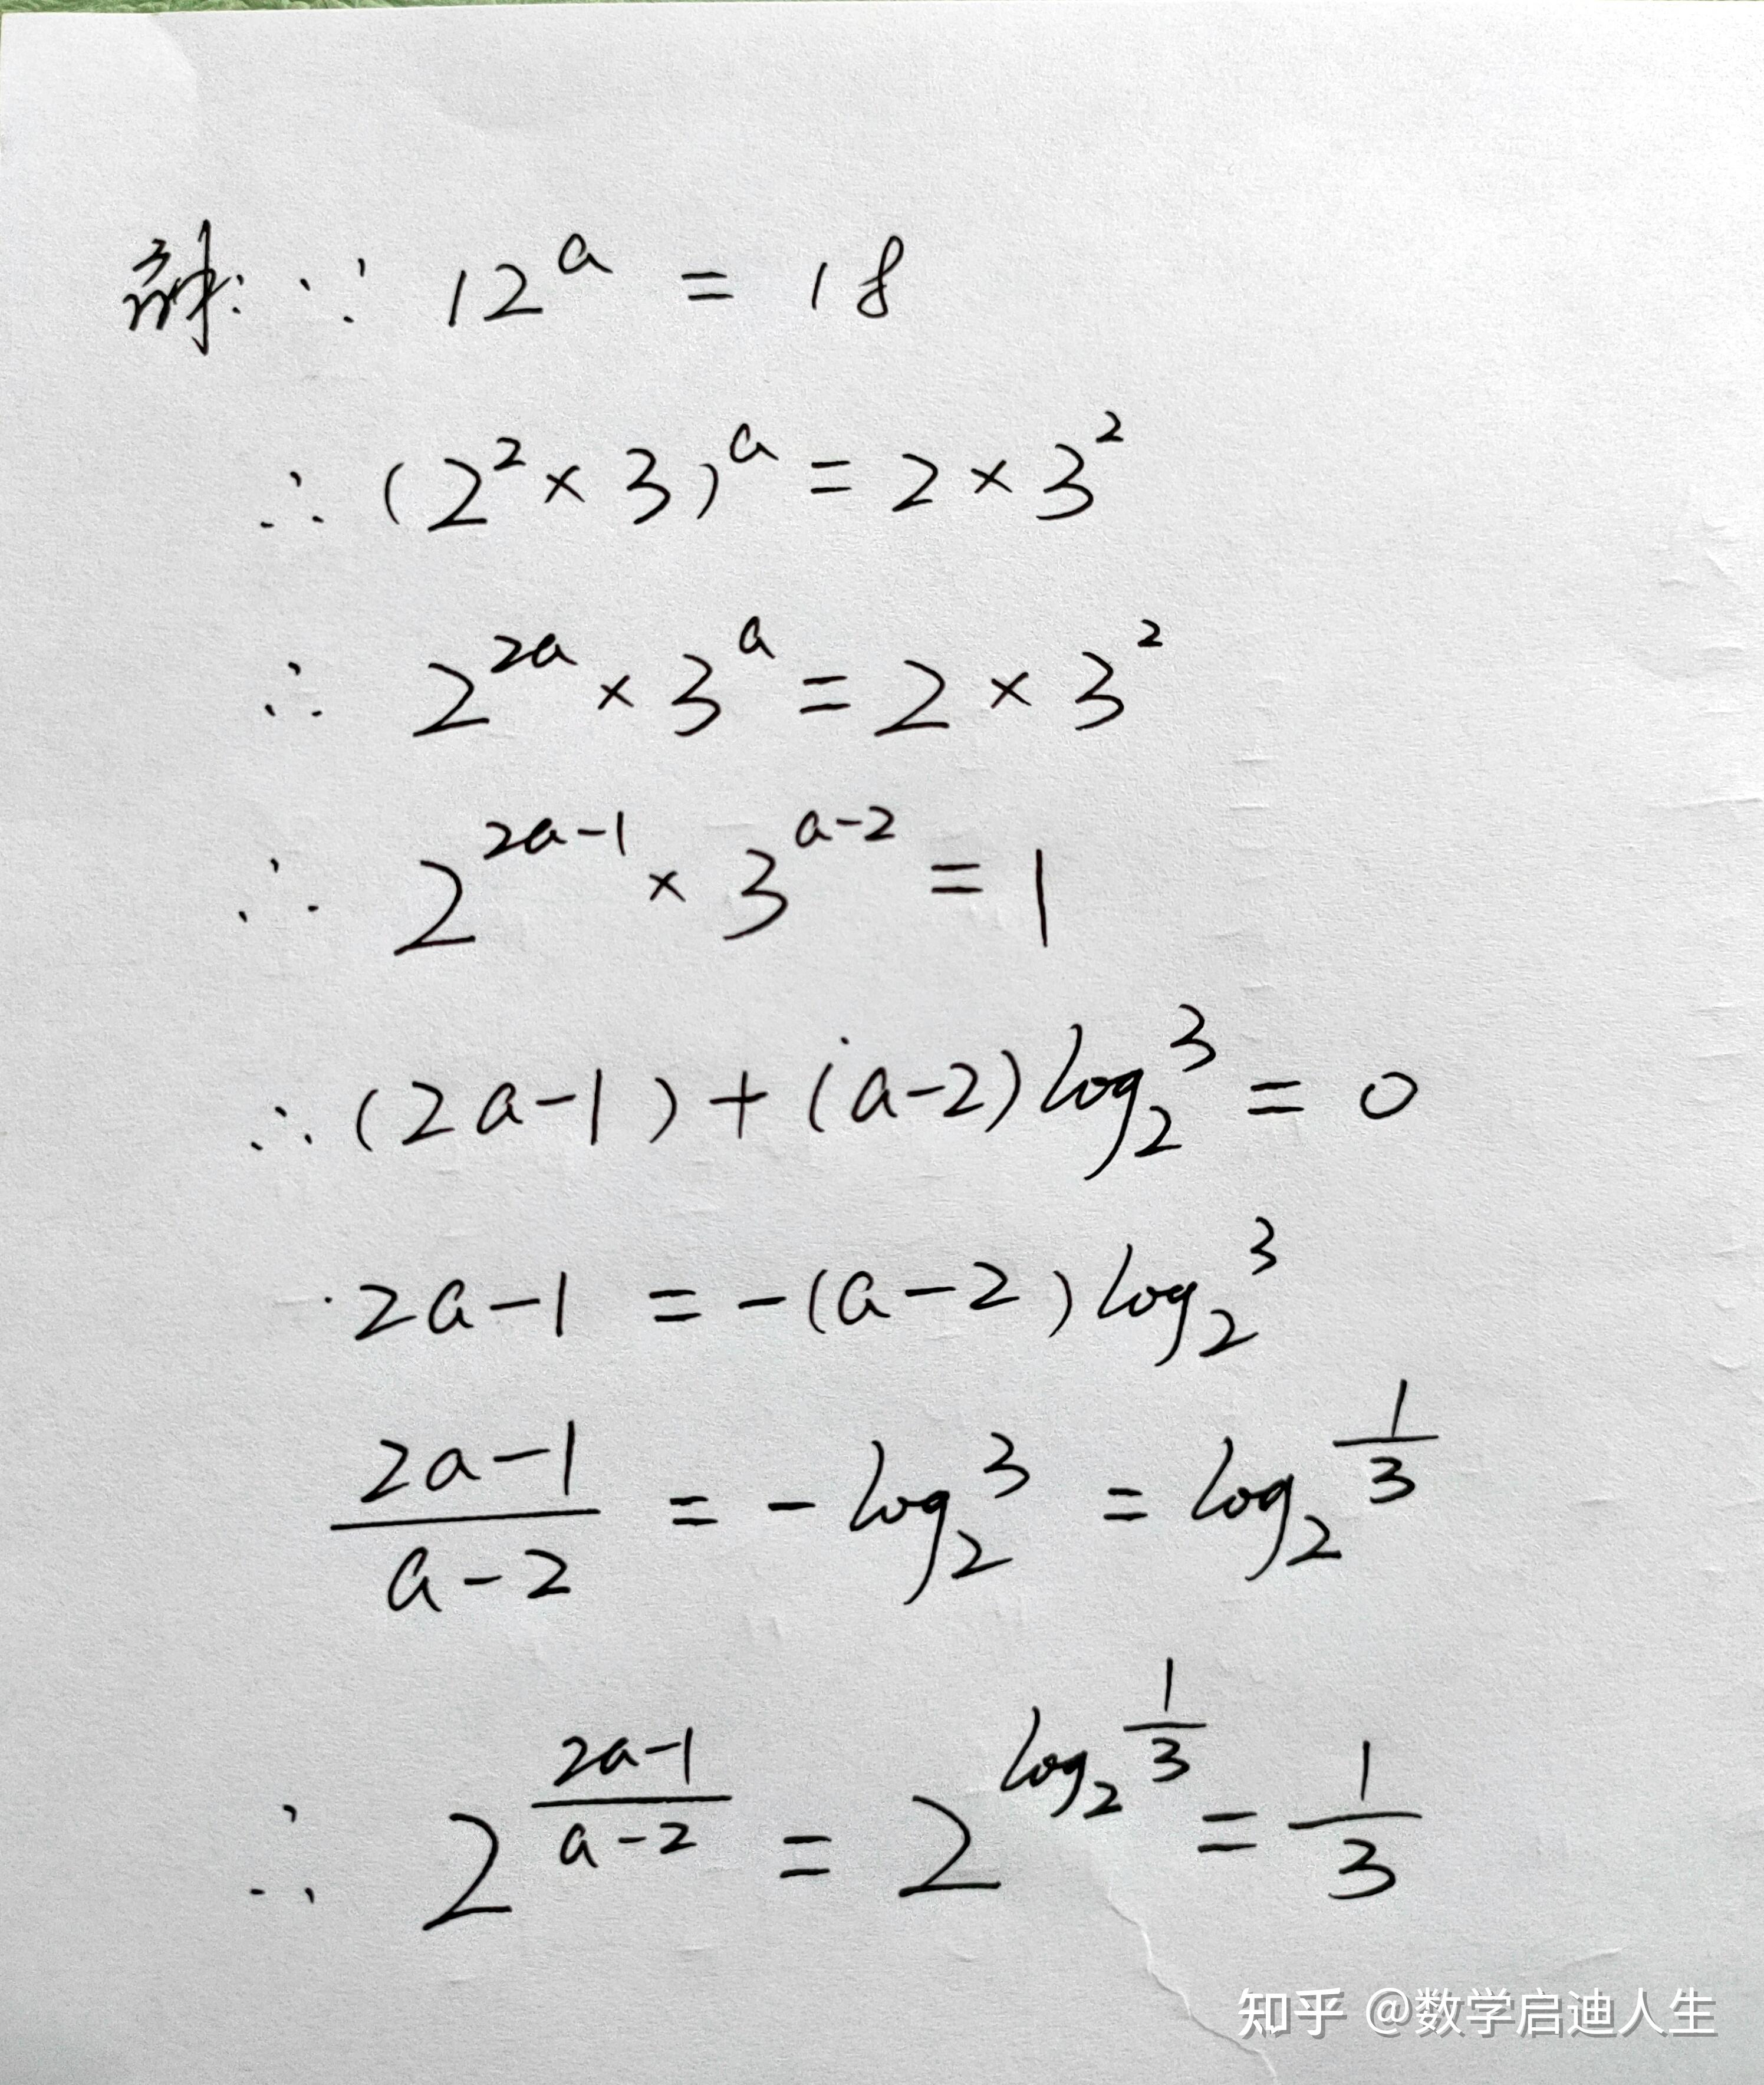 解: ∵ 12^a = 18
∴ (2^2 × 3)^a = 2 × 3^2
∴ 2^{2a} × 3^a = 2 × 3^2
∴ 2^{2a-1} × 3^{a-2} = 1
∴ (2a-1) + (a-2) log_2^3 = 0
2a-1 = -(a-2) log_2^3
\frac{2a-1}{a-2} = -log_2^3 = log_2^{\frac{1}{3}}
∴ 2^{\frac{2a-1}{a-2}} = 2^{log_2^{\frac{1}{3}}} = \frac{1}{3}
知乎 @数学启迪人生